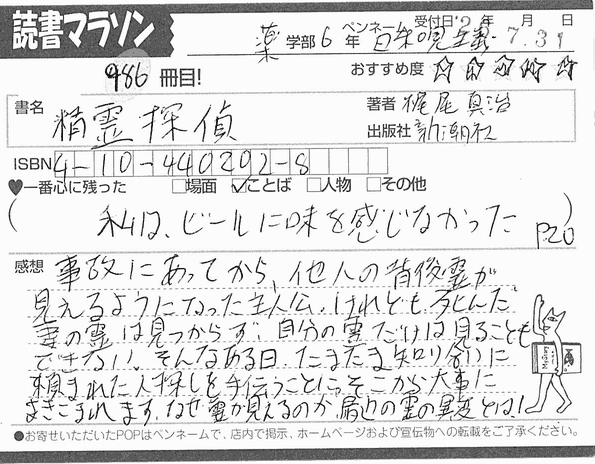 読書マラソン
薬 学部 6 年 ペンネーム 受付日'2 年 7 月 31 日
986 冊目!
おすすめ度 ☆☆☆☆☆
書名 精霊探偵
著者 梶尾真治
出版社 新潮社
ISBN 4-10-440202-8
♥一番心に残った □場面 ☑ことば □人物 □その他
( 私は、ビールに味を感じなかった P.20 )
感想 事故にあってから、他人の背後霊が
見えるようになった主人公。けれども死んだ
妻の霊は見つからず、自分の霊だけは見ることも
できない。そんなある日、たまたま知り合いに
頼まれた人探しを手伝うことに。そこから大事に
まきこまれます。なぜ霊が見えるのか、周辺の霊の異変とは!
●お寄せいただいたPOPはペンネームで、店内で掲示、ホームページおよび宣伝物への転載をご了承ください。